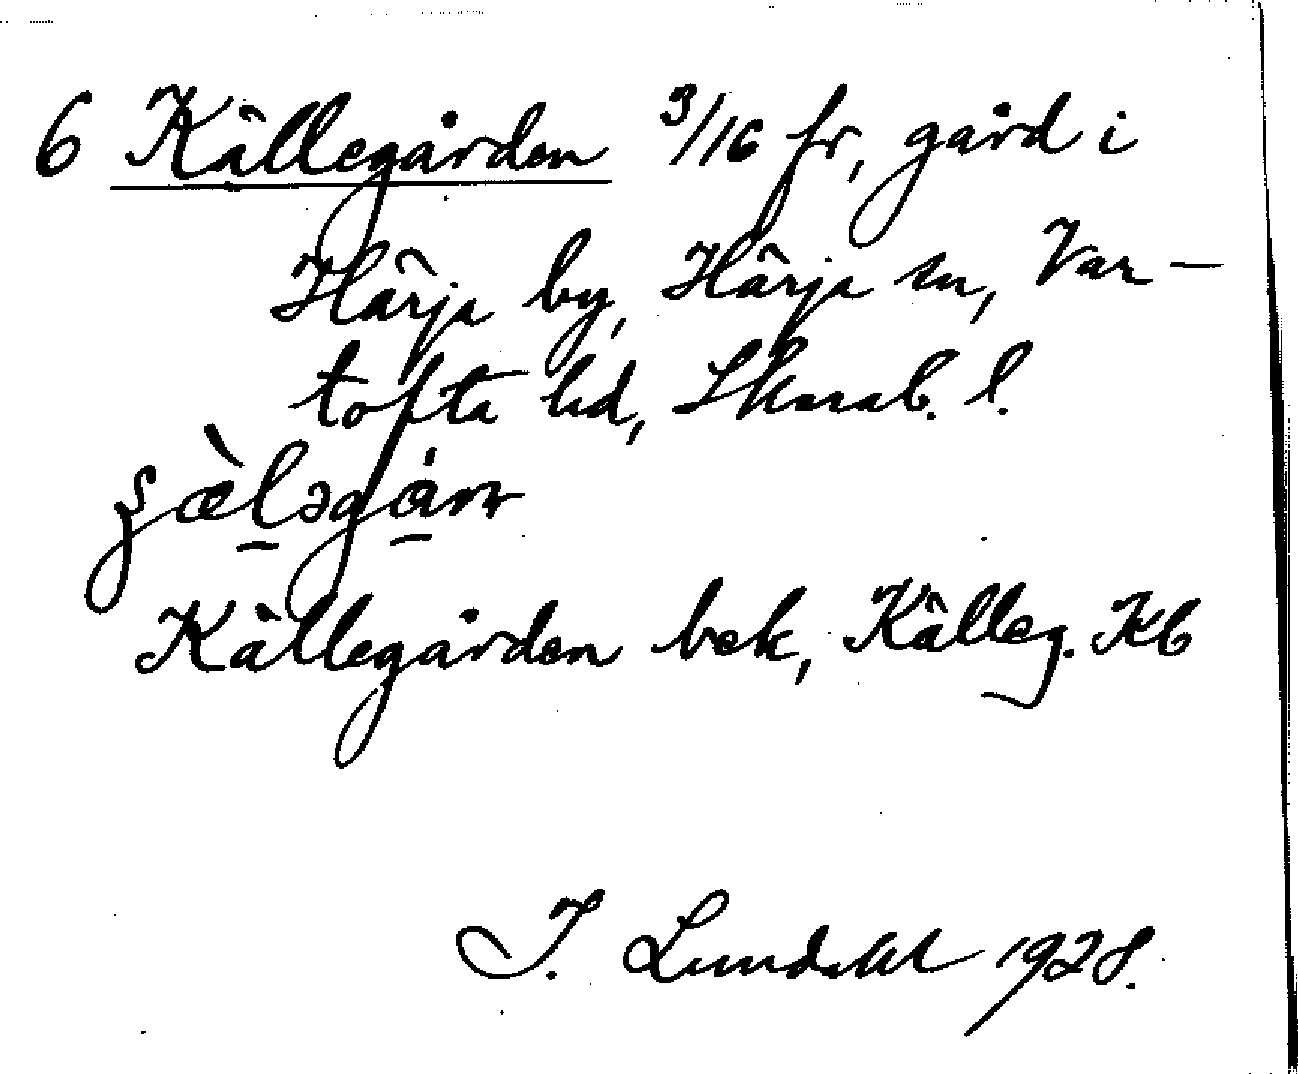 6 Källegården 3/16 fr, gård i
Härja by, Härja sn, Var-
tofta hd, Skarab. l.
Källegården bek, Källeg. Kb
I. Lundahl 1928.